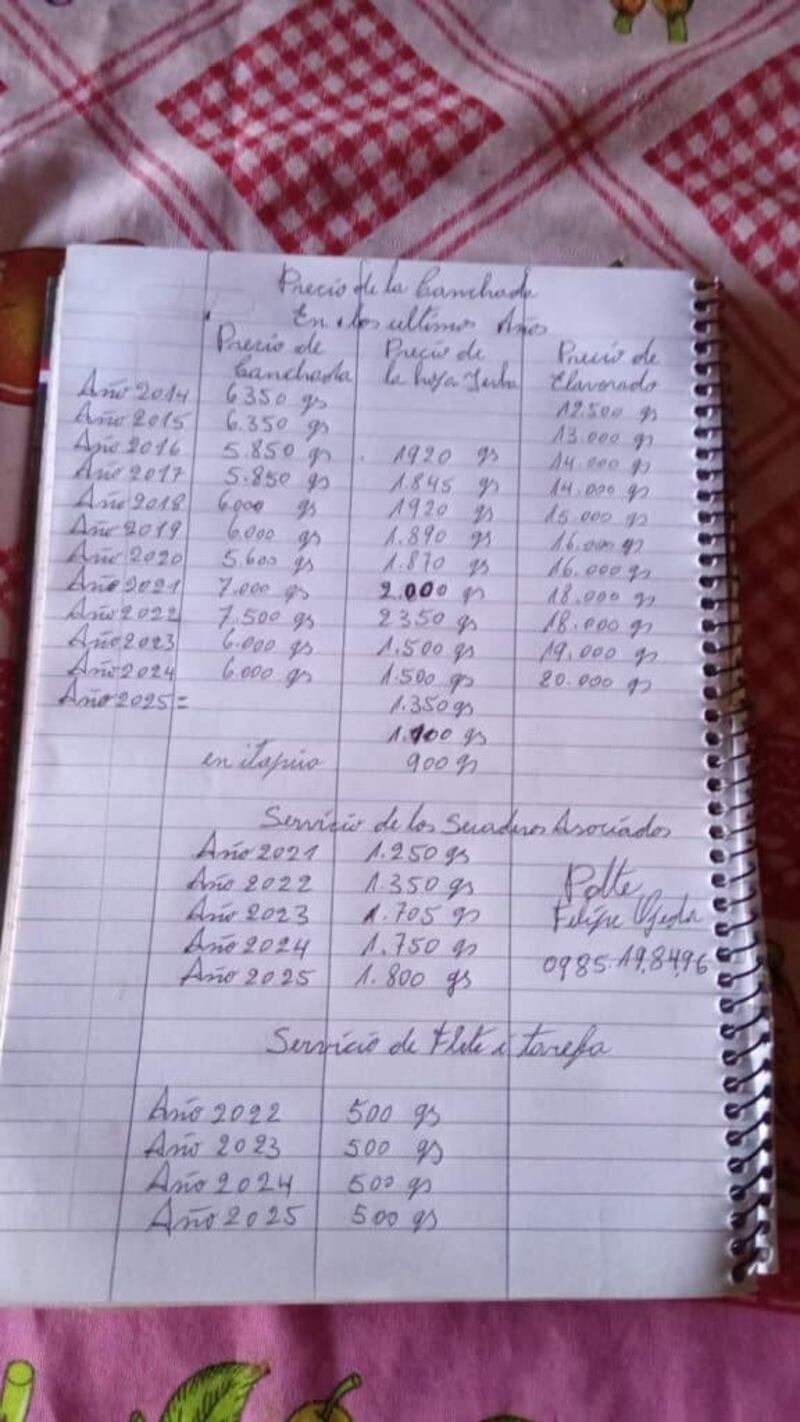 Precio de la Canchada
En los ultimos Años
Precio de Canchada Precio de la hoja Yerba Precio de Elavorado
Año 2014 6350 gs 12.500 gs
Año 2015 6.350 gs 13.000 gs
Año 2016 5.850 gs 1920 gs 14.000 gs
Año 2017 5.850 gs 1.845 gs 14.000 gs
Año 2018 6000 gs 1920 gs 15.000 gs
Año 2019 6.000 gs 1.890 gs 16.000 gs
Año 2020 5.600 gs 1.870 gs 16.000 gs
Año 2021 7.000 gs 2.000 gs 18.000 gs
Año 2022 7.500 gs 2350 gs 18.000 gs
Año 2023 6.000 gs 1.500 gs 19.000 gs
Año 2024 6.000 gs 1.500 gs 20.000 gs
Año 2025 = 1.350 gs
1.100 gs
en itapua 900 gs
Servicio de los Secaderos Asociados
Año 2021 1.250 gs
Año 2022 1.350 gs
Año 2023 1.705 gs
Año 2024 1.750 gs
Año 2025 1.800 gs
Pdte
Felipe Ojeda
0985.19.84.96
Servicio de Flete i tarefa
Año 2022 500 gs
Año 2023 500 gs
Año 2024 500 gs
Año 2025 500 gs